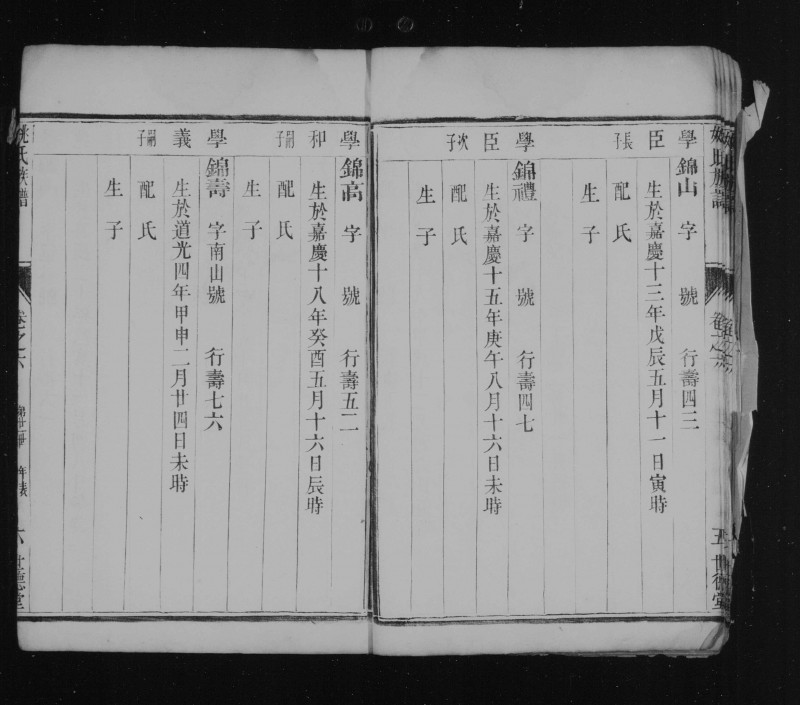 學 錦山 字 號 行壽四三
臣 生於嘉慶十三年戊辰五月十一日寅時
長子 配 氏
生 子
學 錦禮 字 號 行壽四七
臣 生於嘉慶十五年庚午八月十六日未時
次子 配 氏
生 子
學 錦高 字 號 行壽五二
和 生於嘉慶十八年癸酉五月十六日辰時
嗣子 配 氏
生 子
學 錦壽 字南山號 行壽七六
義 生於道光四年甲申二月廿四日未時
嗣子 配 氏
生 子
姚氏族譜 卷之六 六 世德堂